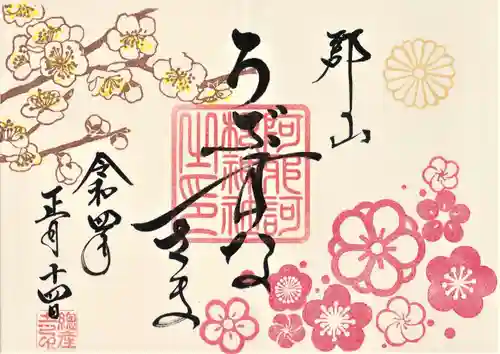 郡山
うぶすな
さま
阿邪訶
根神社
之印
令和四年
正月十四日